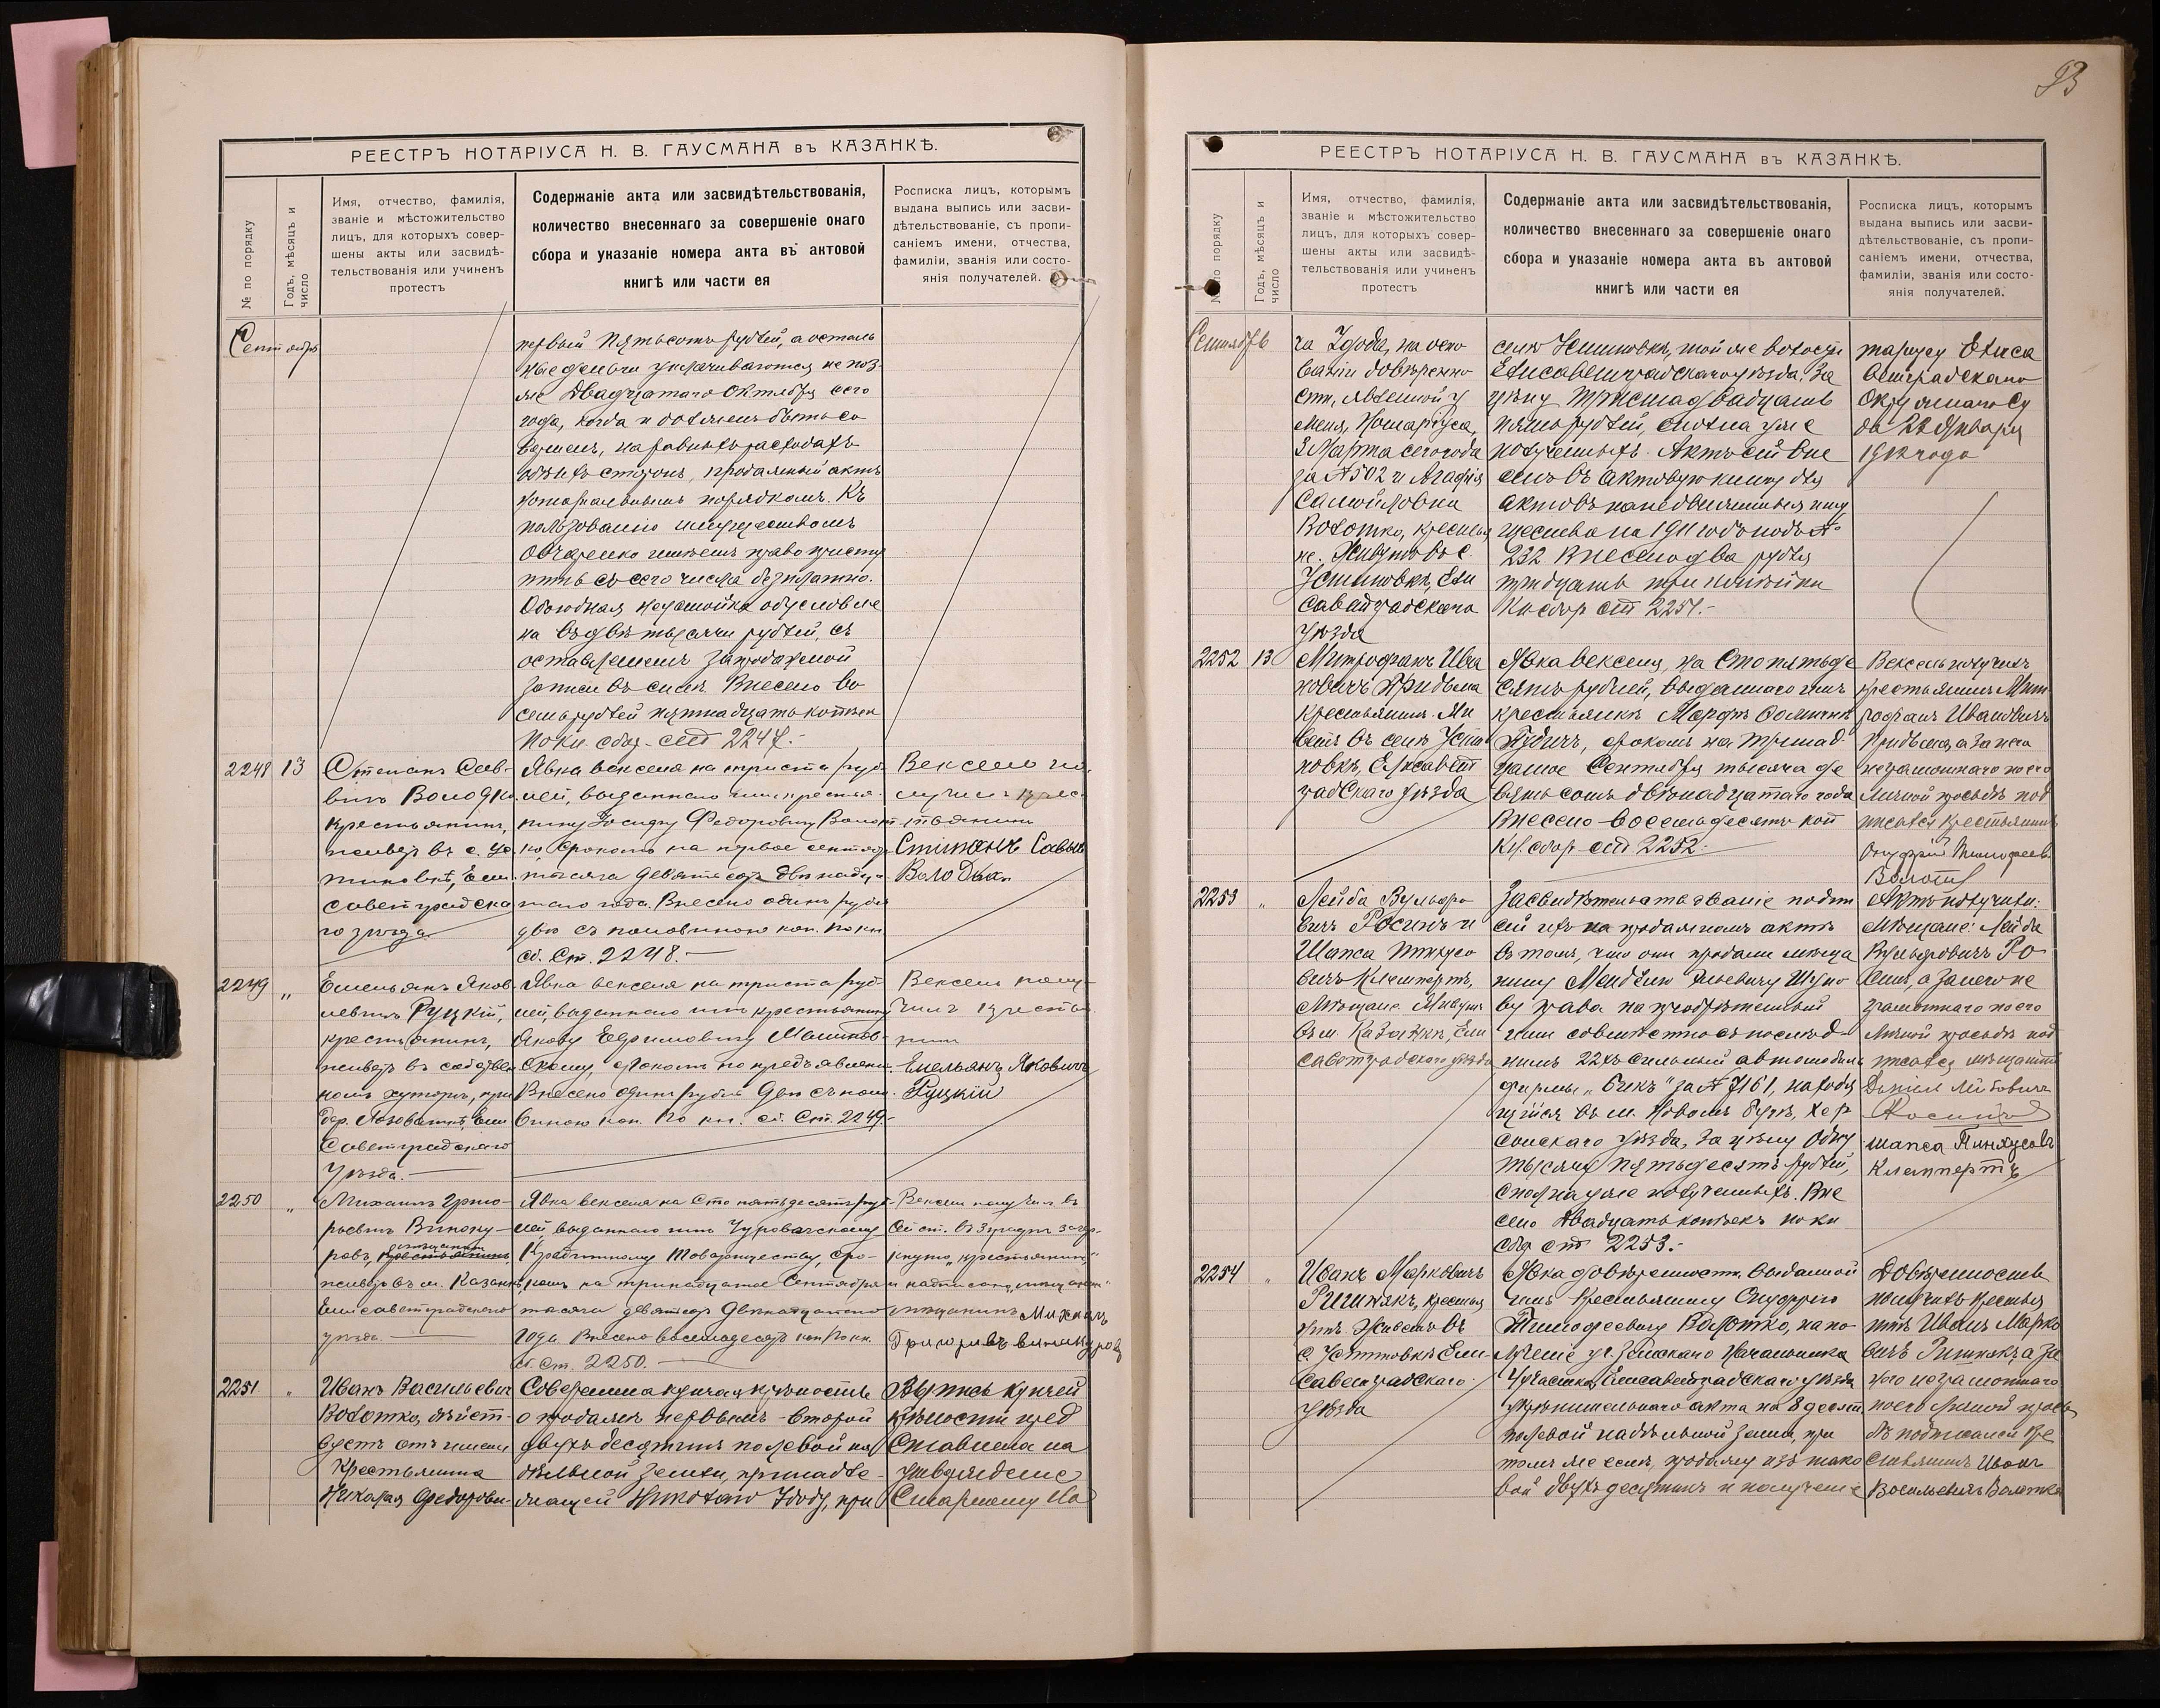 РЕЕСТРЪ НОТАРІУСА Н. В. ГАУСМАНА въ КАЗАНКѢ.
№ по порядку
Годъ, мѣсяцъ и
число
Имя, отчество, фамилія,
званіе и мѣстожительство
лицъ, для которыхъ совер-
шены акты или засвидѣ-
тельствованія или учиненъ
протестъ
Содержаніе акта или засвидѣтельствованія,
количество внесеннаго за совершеніе онаго
сбора и указаніе номера акта въ актовой
книгѣ или части ея
Росписка лицъ, которымъ
выдана выпись или засви-
дѣтельствованіе, съ пропи-
саніемъ имени, отчества,
фамиліи, званія или состо-
янія получателей.
Сентябрь
первый пятьсотъ рублей, а осталь
ныя деньги уплачиваются не поз
же двадцатаго Октября сего
года, когда и долженъ быть со
вершенъ, на равныхъ расходахъ
обѣихъ сторонъ, продажный актъ
нотаріальнымъ порядкомъ. Къ
пользованію имуществомъ
Овчаренко имѣетъ право присту
пить съ сего числа безплатно.
Обоюдная неустойка обусловле
на въ двѣ тысячи рублей, съ
оставленіемъ запродажной
записи въ силѣ. Внесено во
семь рублей пятнадцать копѣек
по кн. сбор. ст 2247.-
2248 13
Степанъ Сав-
вичъ Володко
крестьянинъ,
живетъ въ с. Ус
тиновкѣ, Ели
саветградска
го уѣзда
Явка векселя на триста руб
лей, выданнаго имъ крестья-
нину Іосифу Федоровичу Волот
ко, срокомъ на первое сентяб
тысяча девятьсотъ двѣнадца
таго года. Внесено одинъ рубль
дво съ половиною коп. по кн
сб. Ст. 2248.-
Вексель по
лучилъ крес
тьянинъ
Степанъ Савын
Володка
2249 „
Емельянъ Яков
левичъ Руцкій,
крестьянинъ,
живетъ въ собствен
номъ хуторѣ, при
дер. Лозоваткѣ, Ели
саветградскаго
Уѣзда.-
Явка векселя на триста руб
лей, выданнаго имъ крестьянину
Якову Ефимовичу
скому, срокомъ по предъявлени
Внесено одинъ рубль дво съ поло
виною коп. по кн. сб. Ст. 2249
Вексель полу
чилъ крестья
нинъ
Емельянъ Яковичъ
Руцкій
2250 „
Михаилъ Григо-
рьевичъ Виноку-
ровъ, крестьянинъ
мѣщанинъ
живетъ въ м. Казанкѣ
Елисаветградскаго
уѣзда.
Явка векселя на сто пятьдесятъ руб
лей, выданнаго имъ
Кредитному Товариществу, сро-
комъ на тринадцатое Сентября
тысяча девятьсотъ двѣнадцатаго
года. Внесено восемьдесятъ коп. по кн.
сб. Ст. 2250.-
Вексель получилъ въ
сей ст. въ 3 графѣ зачер-
кнуто „крестьянинъ"
и надписано „мѣщанинъ"
мѣщанинъ Михаилъ
Григоривъ винакуров
2251 „
Иванъ Васильевич
Волотко, дѣйст-
вуетъ отъ имени
Крестьянина
Николая Федорови-
Совершена купчая крѣпость
о продажѣ первымъ второй
двухъ десятинъ полевой на
дѣльной земли, принадле-
жащей Николаю Удоду, при
Выпись купчей
крѣпости пред
ставлена на
утвержденіе
Старшему Но
93
РЕЕСТРЪ НОТАРІУСА Н. В. ГАУСМАНА въ КАЗАНКѢ.
№ по порядку
Годъ, мѣсяцъ и
число
Имя, отчество, фамилія,
званіе и мѣстожительство
лицъ, для которыхъ совер-
шены акты или засвидѣ-
тельствованія или учиненъ
протестъ
Содержаніе акта или засвидѣтельствованія,
количество внесеннаго за совершеніе онаго
сбора и указаніе номера акта въ актовой
книгѣ или части ея
Росписка лицъ, которымъ
выдана выпись или засви-
дѣтельствованіе, съ пропи-
саніемъ имени, отчества,
фамиліи, званія или состо-
янія получателей.
Сентябрь
ча Удода, на осно
ваніи довѣренно
сти, явленной у
меня, Нотаріуса,
2 Марта сего года
за № 502 и Агафія
Самойловна
Волотко, крестья
не. Живутъ въ с.
Устиновкѣ, Ели
саветградскаго
уѣзда
селѣ Устиновкѣ, той же волости
Елисаветградскаго уѣзда. За
цѣну триста двадцать
пять рублей, сполна уже
полученныхъ. Актъ сей вне
сенъ въ актовую книгу для
актовъ на недвижимыя иму
щества на 1911 годъ подъ №
232. Внесено два рубля
тридцать три копѣйки
Кн сбор ст 2251.-
таріусу Елиса
ветградскаго
Окружнаго Су
да 22 Января
1912 года
2252 13
Митрофанъ Ива
новичъ Придыма
Крестьянинъ. Жи
ветъ въ селѣ Усти
новкѣ, Елисавет
градскаго уѣзда
Явка векселя, на сто пятьде
сятъ рублей, выданнаго имъ
крестьянкѣ Марфѣ
срокомъ на тринад
цатое Сентября тысяча де
вятьсотъ двѣнадцатаго года
Внесено восемьдесятъ коп
Кн. сбор ст 2252.
Вексель получилъ
крестьянинъ Мит
рофанъ Ивановичъ
Придыма, а за него
неграмотнаго по его
личной просьбѣ под
писался крестьянинъ
Онуфрій Тимофеев.
Волот
2253 „
Лейба Вульфо
вичъ Росинъ и
Шапса Пинхусо
вичъ Клемпертъ,
мѣщане. Живутъ
въ м. Казанкѣ, Ели
саветградскаго уѣзда
Засвидѣтельствованіе подпи
сей ихъ на продажномъ актѣ
въ томъ, что они продали мѣща
нину Менделю
ву права на пріобрѣтенный
ими совмѣстно съ послѣд-
нимъ 22хъ сильный автомобиль
фирмы „Бикъ" за № 7161, находя
щійся въ м. Новомъ Бугѣ, Хер
сонскаго уѣзда, за цѣну одну
тысячу пятьдесятъ рублей,
сполна уже полученныхъ. Вне
сено двадцать копѣекъ по кн
сбор ст 2253.-
Актъ получили:
мѣщане: Лейба
Вульфовичъ Ро-
синъ, а за него не
грамотнаго по его
личной просьбѣ под
писался мѣщанинъ
Лейбовичъ
Росинъ
шапса Пинхусовъ
Клемпертъ
2254 „
Иванъ Марковичъ
Ришнякъ, крестья
нинъ. Живетъ въ
с. Устиновкѣ Ели-
саветградскаго
уѣзда
Явка довѣренности, выданной
имъ крестьянину Онуфрію
Тимофеевичу Волотко, на по-
лученіе у г. Земскаго Начальника
Участка Елисаветградскаго уѣзда
укрѣпительнаго акта на 8 десят
полевой надѣльной земли, при
томъ же селѣ, продажу изъ тако
вой двухъ десятинъ и полученіе
Довѣренность
получилъ крестья
нинъ Иванъ Марко
вичъ Ришнякъ, а за
него неграмотнаго
по его личной прось
бѣ подписался кре
стьянинъ Иванъ
Васильевичъ Волотко